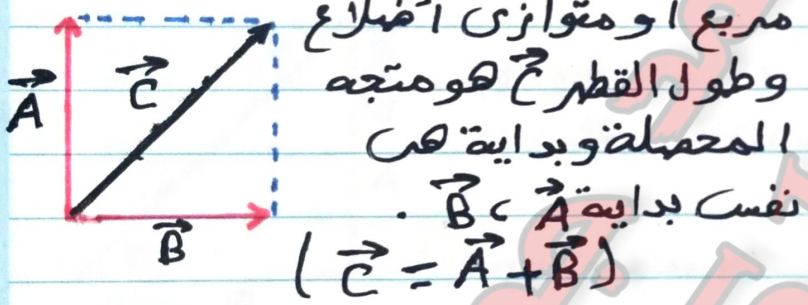 مربع او متوازى اضلاع
وطول القطر C⃗ هو متجه
المحصلة وبداية هى
نفس بداية A⃗ ، B⃗ .
( C⃗ = A⃗ + B⃗ )
A⃗
C⃗
B⃗